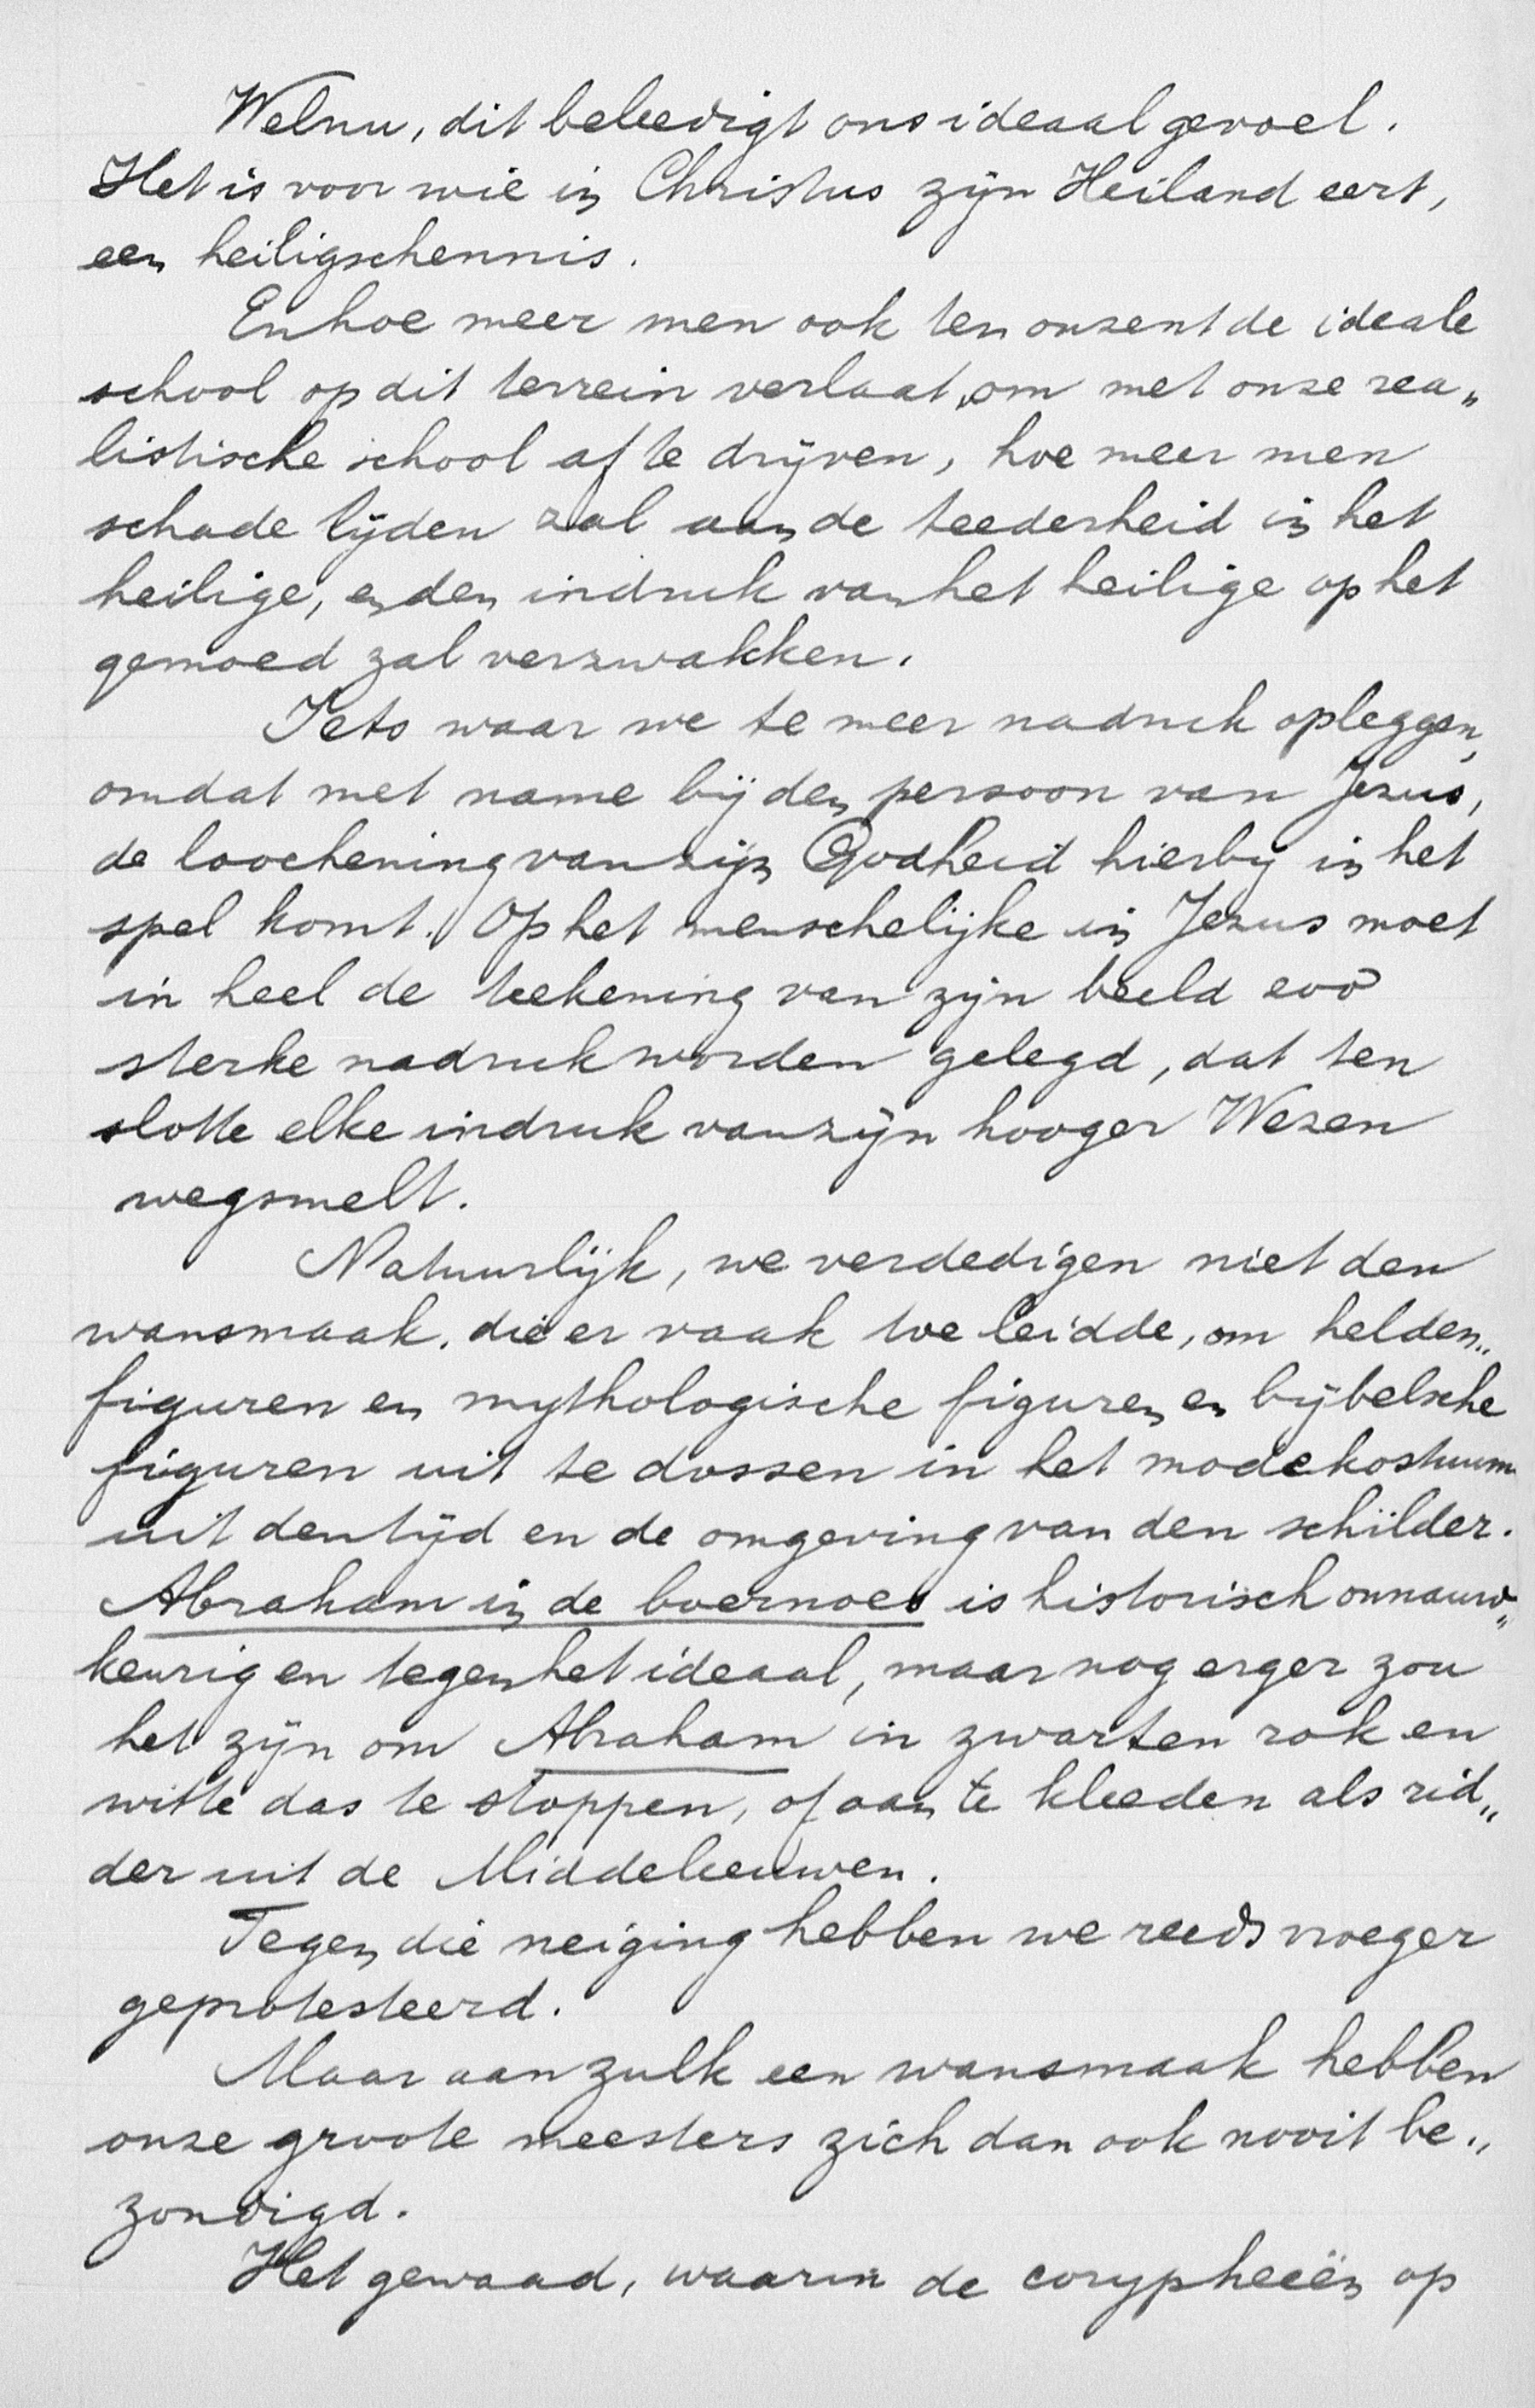 Welnu, dit beleedigt ons ideaal gevoel.
Het is voor wie in Christus zijn Heiland eert,
een heiligschennis.
En hoe meer men ook ten onzent de ideale
school op dit terrein verlaat, om met onze rea„
listische school af te drijven, hoe meer men
schade lijden zal aan de teederheid in het
heilige, en den indruk van het heilige op het
gemoed zal verzwakken.
Iets waar we te meer nadruk opleggen,
omdat met name bij den persoon van Jezus,
de loochening van zijn Godheid hierbij in het
spel komt. Op het menschelijke in Jezus moet
in heel de teekening van zijn beeld zoo
sterke nadruk worden gelegd, dat ten
slotte elke indruk van zijn hooger Wezen
wegsmelt.
Natuurlijk, we verdedigen niet den
wansmaak, die er vaak toe leidde, om helden„
figuren en mythologische figuren en bijbelsche
figuren uit te dossen in het modekostuum
uit den tijd en de omgeving van den schilder.
Abraham in de boernoes is historisch onnauw„
keurig en tegen het ideaal, maar nog erger zou
het zijn om Abraham in zwarten rok en
witte das te stoppen, of aan te kleeden als rid„
der uit de Middeleeuwen.
Tegen die neiging hebben we reeds vroeger
geprotesteerd.
Maar aan zulk een wansmaak hebben
onze groote meesters zich dan ook nooit be„
zondigd.
Het gewaad, waarin de corypheeën op